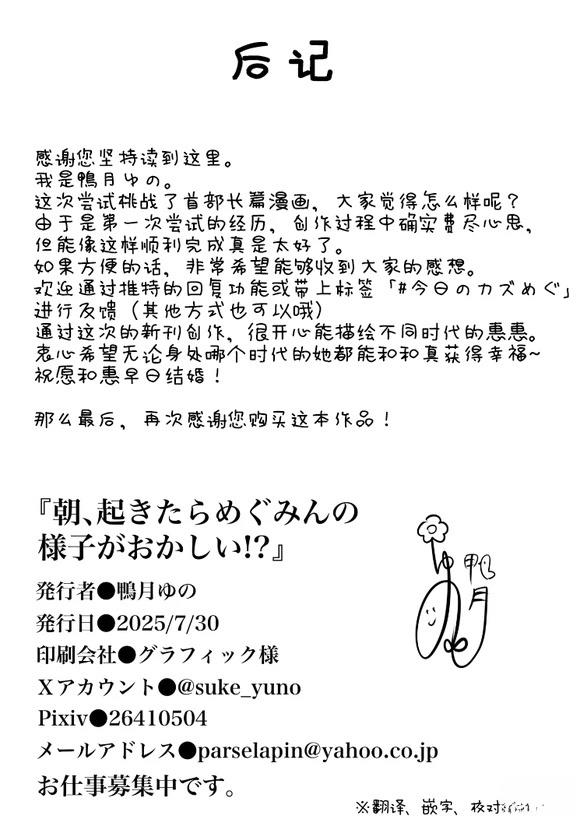 后记
感谢您坚持读到这里。
我是鴨月ゆの。
这次尝试挑战了首部长篇漫画，大家觉得怎么样呢？
由于是第一次尝试的经历，创作过程中确实费尽心思，
但能像这样顺利完成真是太好了。
如果方便的话，非常希望能够收到大家的感想。
欢迎通过推特的回复功能或带上标签「#今日のカズめぐ」
进行反馈（其他方式也可以哦）
通过这次的新刊创作，很开心能描绘不同时代的惠惠。
衷心希望无论身处哪个时代的她都能和和真获得幸福~
祝愿和惠早日结婚！
那么最后，再次感谢您购买这本作品！
『朝、起きたらめぐみんの
様子がおかしい!?』
発行者●鴨月ゆの
発行日●2025/7/30
印刷会社●グラフィック様
Xアカウント●@suke_yuno
Pixiv●26410504
メールアドレス●parselapin@yahoo.co.jp
お仕事募集中です。
鴨月
ゆの
※翻译、嵌字、校对